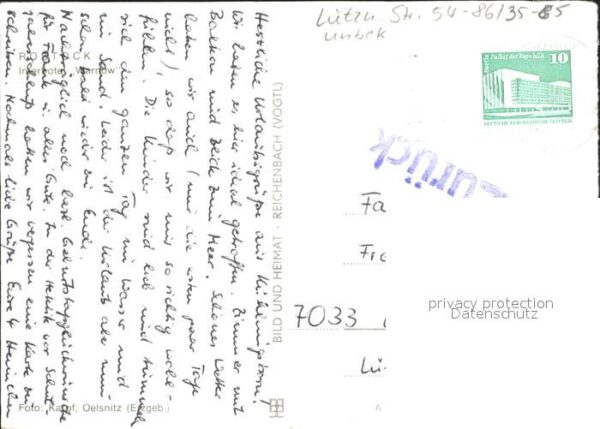 Herzliche Urlaubsgrüße aus Kühlungsborn!
Wir haben es hier ideal getroffen. Zimmer mit
Balkon und Blick zum Meer. Schönes Wetter
haben wir auch (nur die ersten paar Tage
nicht), so daß wir uns so richtig wohl-
fühlen. Die Kinder sind lieb und tummeln
sich den ganzen Tag im Wasser und
im Sand. Leider ist der Urlaub aber nun
schon bald wieder zu Ende.
Nachträglich noch herzl. Geburtstagsglückwünsche
für Frank u. alles Gute. In der Hektik vor
hatten wir vergessen eine Karte zu
schreiben. Nochmals liebe Grüße Eure 4
ROSTOCK
Interhotel Warnow
Foto: Kampf, Oelsnitz (Erzgeb.)
BILD UND HEIMAT · REICHENBACH (VOGTL)
A
Lützn. Str. 54-86/35-85
unbek
Palast der Republik
10
Zurück
Fa
Fr
7033
Lü
privacy protection
Datenschutz